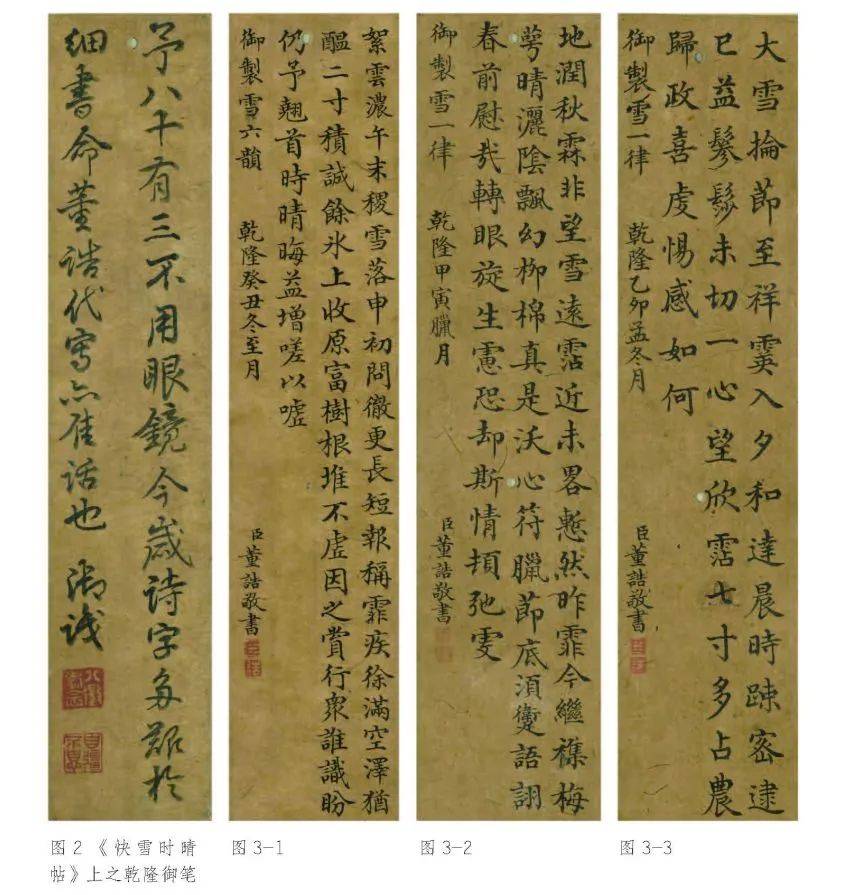 予八十有三不用眼鏡今歲詩字多艱於
細書命董誥代寫亦佳話也 御識
絮雲濃午末稷雪落申初問徹更長短報稱霏疾徐滿空澤猶
醞二寸積誠餘氷上收原富樹根堆不虛因之賞行衆誰識盼
仍予翹首時晴晦益增嗟以噓
御製雪六韻 乾隆癸丑冬至月
臣董誥敬書
地潤秋霖非望雪遠霑近未畧慙然昨霏今繼襍梅
萼晴灑陰飄幻柳棉真是沃心符臘節底須語詡
春前慰哉轉眼旋生慮恐却斯情頓弛虔
御製雪一律 乾隆甲寅臘月
臣董誥敬書
大雪掄節至祥霙入夕和達晨時踈密逮
巳益鬖髿未切一心望欣霑七寸多占農
歸政喜虔惕感如何
御製雪一律 乾隆乙卯孟冬月
臣董誥敬書
图2 《快雪时晴
帖》上之乾隆御笔
图3-1
图3-2
图3-3